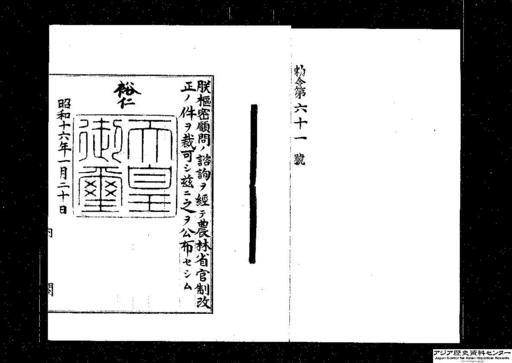 勅令第六十一號
朕樞密顧問ノ諮詢ヲ經テ農林省官制改
正ノ件ヲ裁可シ玆ニ之ヲ公布セシム
裕仁
天皇御璽
昭和十六年一月二十日
内閣
アジア歴史資料センター
Japan Center for Asian Historical Records